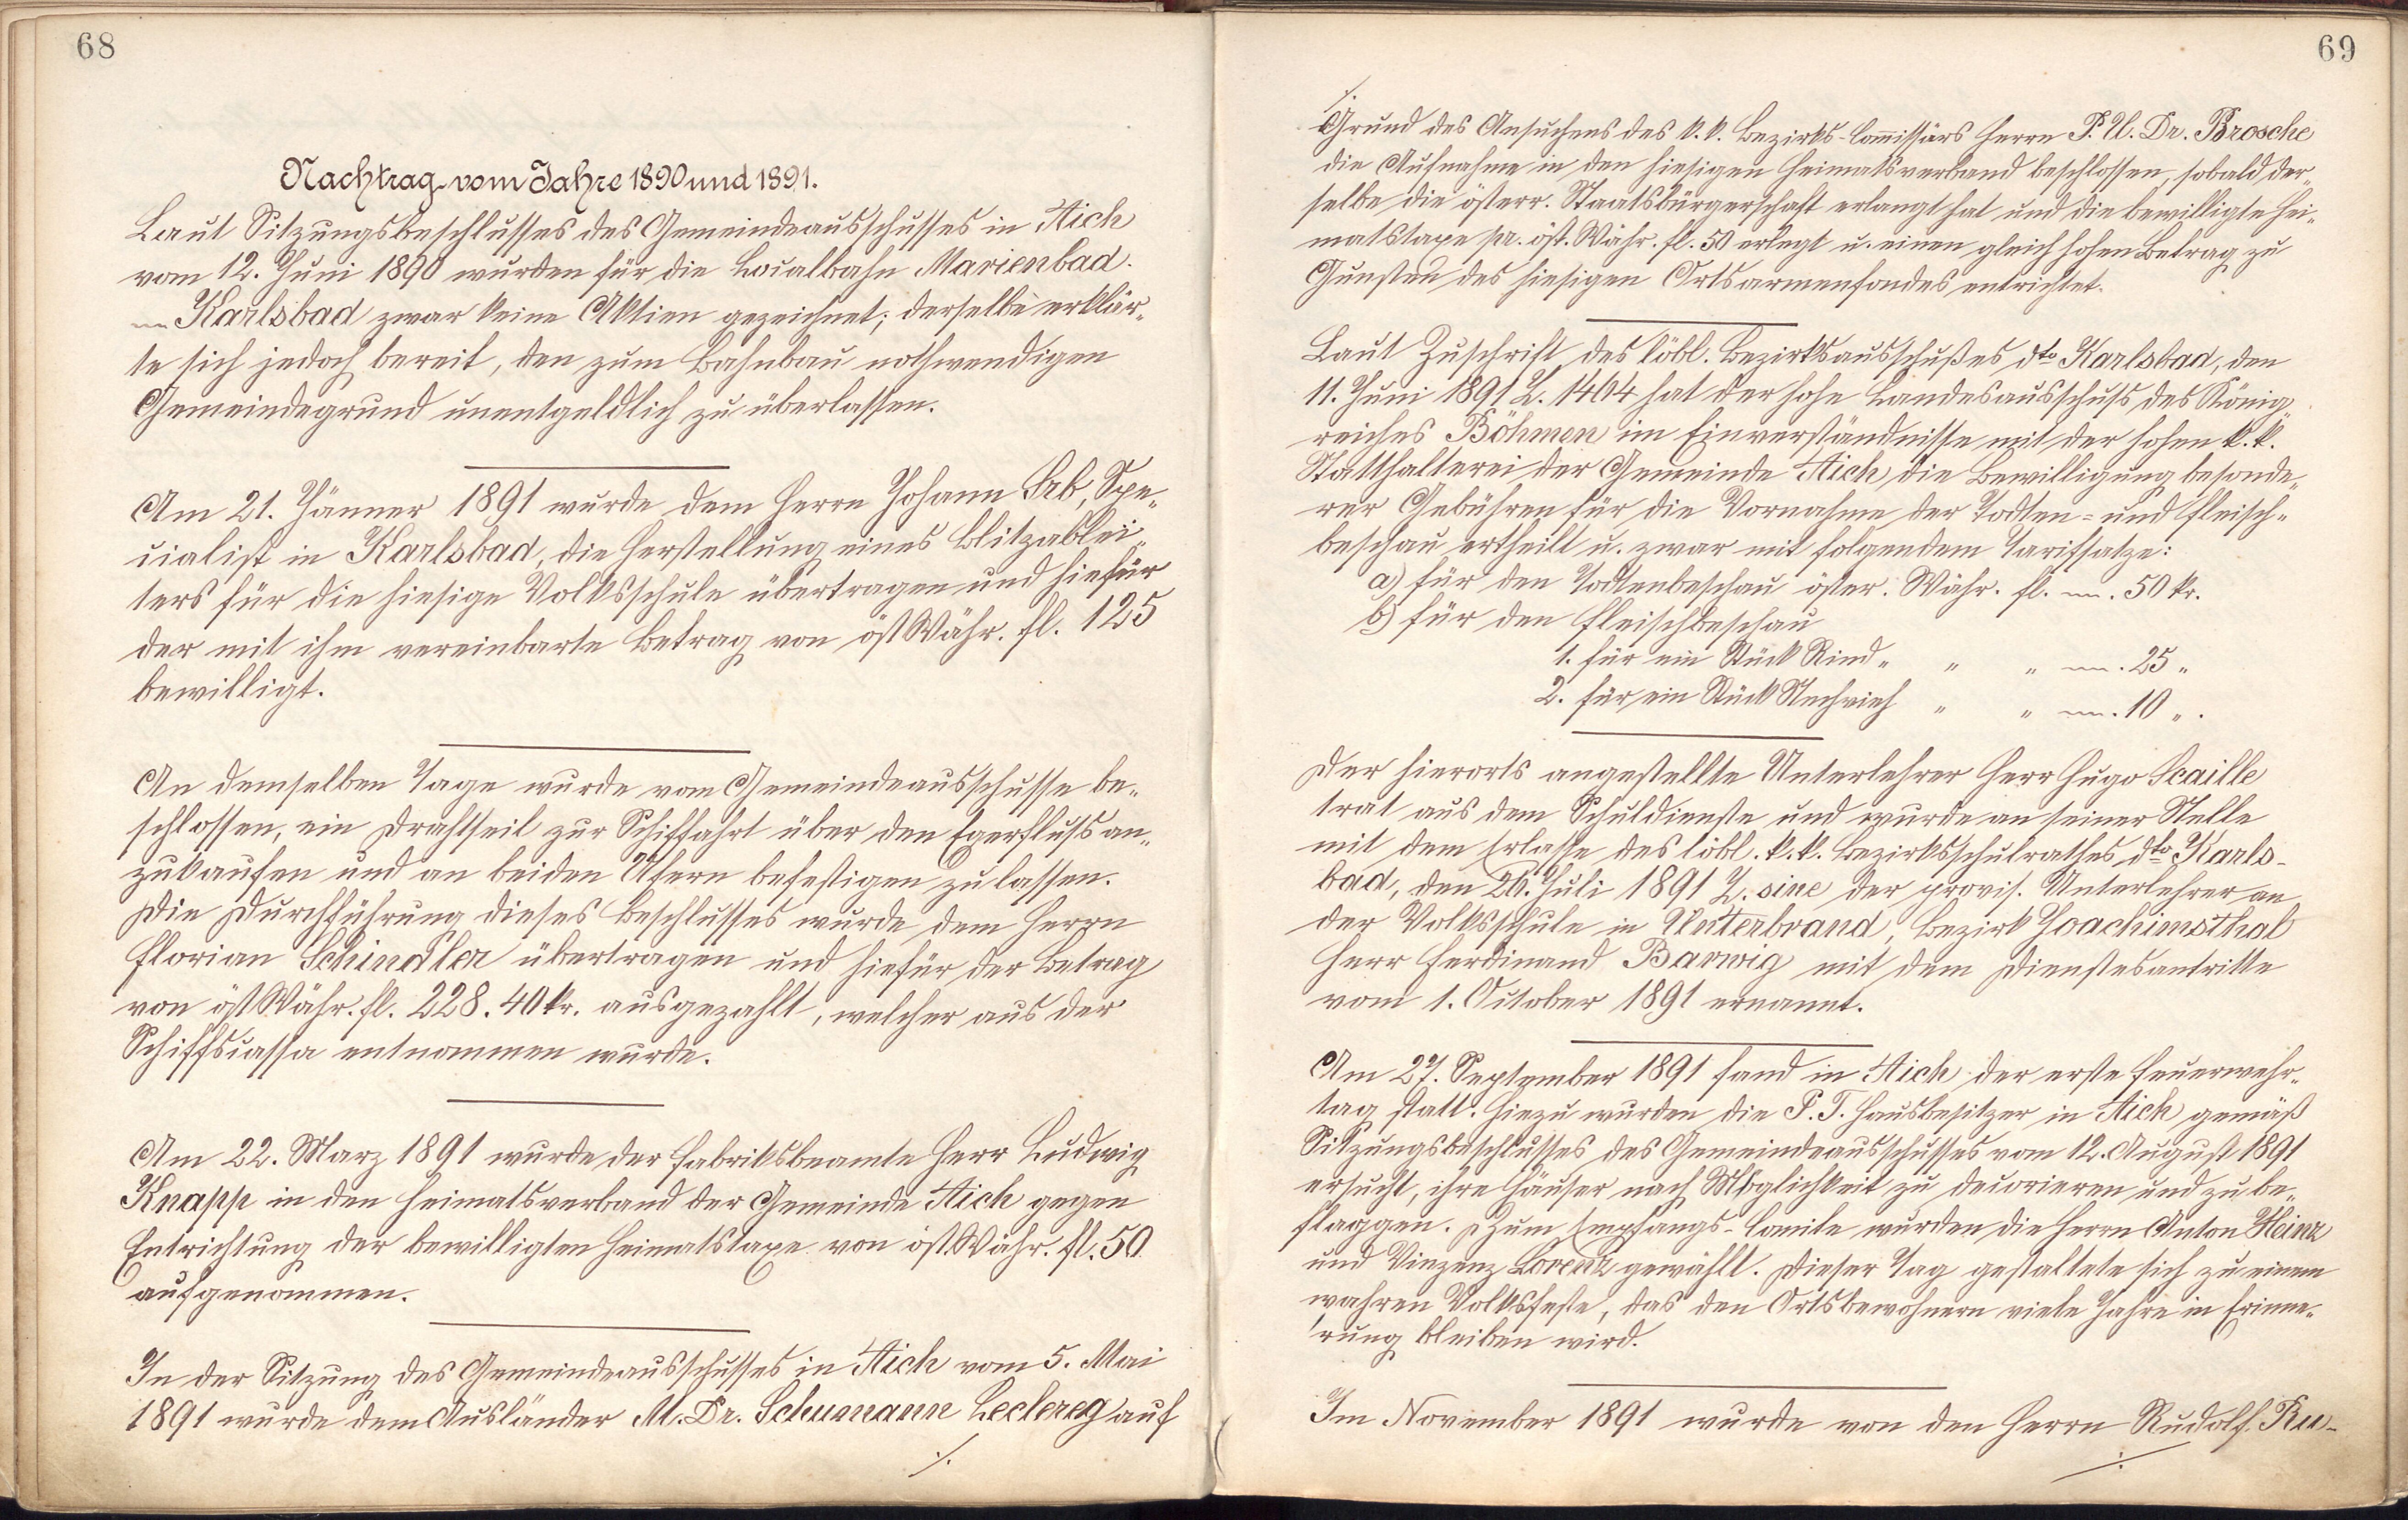 68
Nachtrag vom Jahre 1890 und 1891.
Laut Sitzungsbeschlusses des Gemeindeausschusses in Aich
vom 12. Juni 1890 wurden für die Localbahn Marienbad-
Karlsbad zwar keine Aktien gezeichnet; derselbe erklär-
te sich jedoch bereit, den zum Bahnbau nothwendigen
Gemeindegrund unentgeldlich zu überlassen.
Am 21. Jänner 1891 wurde dem Herrn Johann Srb, Spe-
cialist in Karlsbad, die Herstellung eines Blitzablei-
ters für die hiesige Volksschule übertragen und hiefür
der mit ihm vereinbarte Betrag von öst Währ. fl. 125
bewilligt.
An demselben Tage wurde vom Gemeindeausschusse be-
schlossen, ein Drahtseil zur Schiffahrt über den Egerfluss an-
zukaufen und an beiden Ufern befestigen zu lassen.
Die Durchführung dieses Beschlusses wurde dem Herrn
Florian Schindler übertragen und hiefür der Betrag
von öst Währ. fl. 228.40 kr. ausgezahlt, welcher aus der
Schiffscassa entnommen wurde.
Am 22. Marz 1891 wurde der Fabriksbeamte Herr Ludwig
Knapp in den Heimatsverband der Gemeinde Aich gegen
Entrichtung der bewilligten Heimatstaxe von öst. Währ. fl. 50
aufgenommen.
In der Sitzung des Gemeindeausschusses in Aich vom 5. Mai
1891 wurde dem Ausländer M. Dr. Schumann Leclereg auf
./.
69
./.
Grund des Ansuchens des k. k. Bezirks-Com̄issärs Herrn P. U. Dr. Brosche
die Aufnahme in den hiesigen Heimatsverband beschlossen, sobald der-
selbe die österr. Staatsbürgerschaft erlangt hat und die bewilligte Hei-
matstaxe pr. öst. Währ. fl. 50 erlegt u. einen gleich hohen Betrag zu
Gunsten des hiesigen Ortsarmenfondes entrichtet.
Laut Zuschrift des löbl. Bezirksausschußes dto Karlsbad, den
11. Juni 1891 Z. 1464 hat der hohe Landesausschuss des König-
reiches Böhmen im Einverständnisse mit der hohen k. k.
Statthalterei der Gemeinde Aich die Bewilligung besonde-
rer Gebühren für die Vornahme der Todten- und Fleisch-
beschau ertheilt u. zwar mit folgendem Tarifsatze:
a) für den Todtenbeschau öster. Währ. fl. —. 50 kr.
b) für den Fleischbeschau
1. für ein Stück Rind „ „ „ —. 25 „
2. für ein Stück Stechvieh „ „ —. 10 „.
Der hierorts angestellte Unterlehrer Herr Hugo Scaille
trat aus dem Schuldienste und wurde an seiner Stelle
mit dem Erlasse des löbl. k. k. Bezirksschulrathes dto Karls-
bad, den 26. Juli 1891 Z. sine der provis. Unterlehrer an
der Volksschule in Unterbrand, Bezirk Joachimsthal
Herr Ferdinand Barwig mit dem Dienstesantritte
vom 1. October 1891 ernannt.
Am 27. September 1891 fand in Aich der erste Feuerwehr-
tag statt. Hiezu wurden die P. T. Hausbesitzer in Aich gemäß
Sitzungsbeschlusses des Gemeindeausschusses vom 12. August 1891
ersucht, ihre Häuser nach Möglichkeit zu decorieren und zu be-
flaggen. Zum Empfangs-Comite wurden die Herrn Anton Heinz
und Vinzenz Lorenz gewählt. Dieser Tag gestaltete sich zu einem
wahren Volksfeste, das den Ortsbewohnern viele Jahre in Erinne-
rung bleiben wird.
Im November 1891 wurde von den Herrn Rudolf Ru-
./.